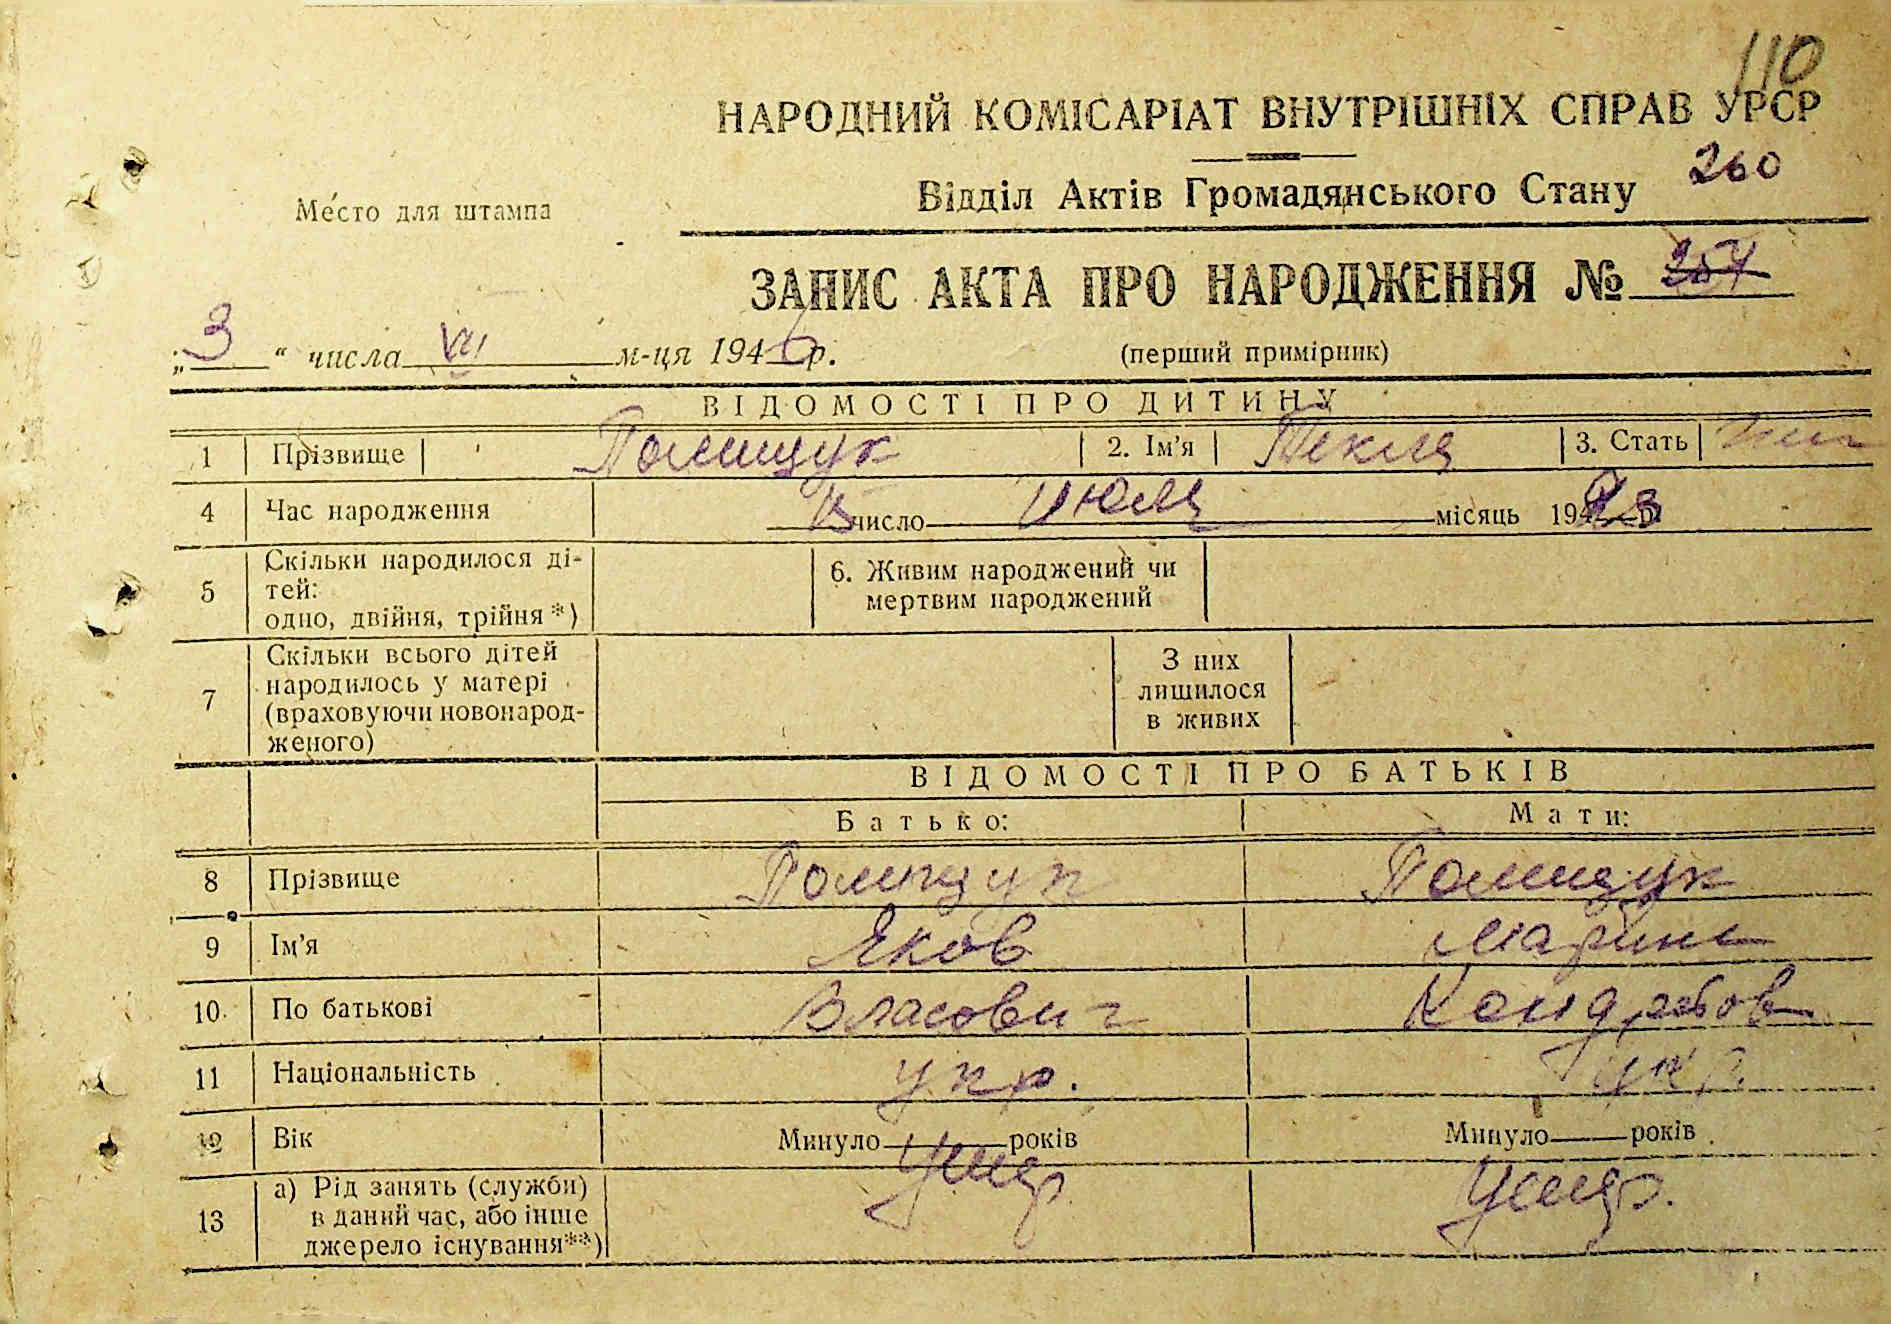 110
НАРОДНИЙ КОМІСАРІАТ ВНУТРІШНІХ СПРАВ УРСР
Место для штампа
Відділ Актів Громадянського Стану 260
ЗАПИС АКТА ПРО НАРОДЖЕННЯ № 254
„3“ числа VII м-ця 1946 р. (перший примірник)
ВІДОМОСТІ ПРО ДИТИНУ
1 Прізвище Полищук 2. Ім’я Текля 3. Стать
4 Час народження число июля місяць 194
5 Скільки народилося ді-
тей:
одно, двійня, трійня*)
6. Живим народжений чи
мертвим народжений
7 Скільки всього дітей
народилось у матері
(враховуючи новонарод-
женого)
З них
лишилося
в живих
ВІДОМОСТІ ПРО БАТЬКІВ
Батько: Мати:
8 Прізвище Полищук Полищук
9 Ім’я Яков Марина
10 По батькові Власович Кондратов
11 Національність укр. укр.
12 Вік Минуло років Минуло років
13 а) Рід занять (служби)
в даний час, або інше
джерело існування**)
Умер Умер.